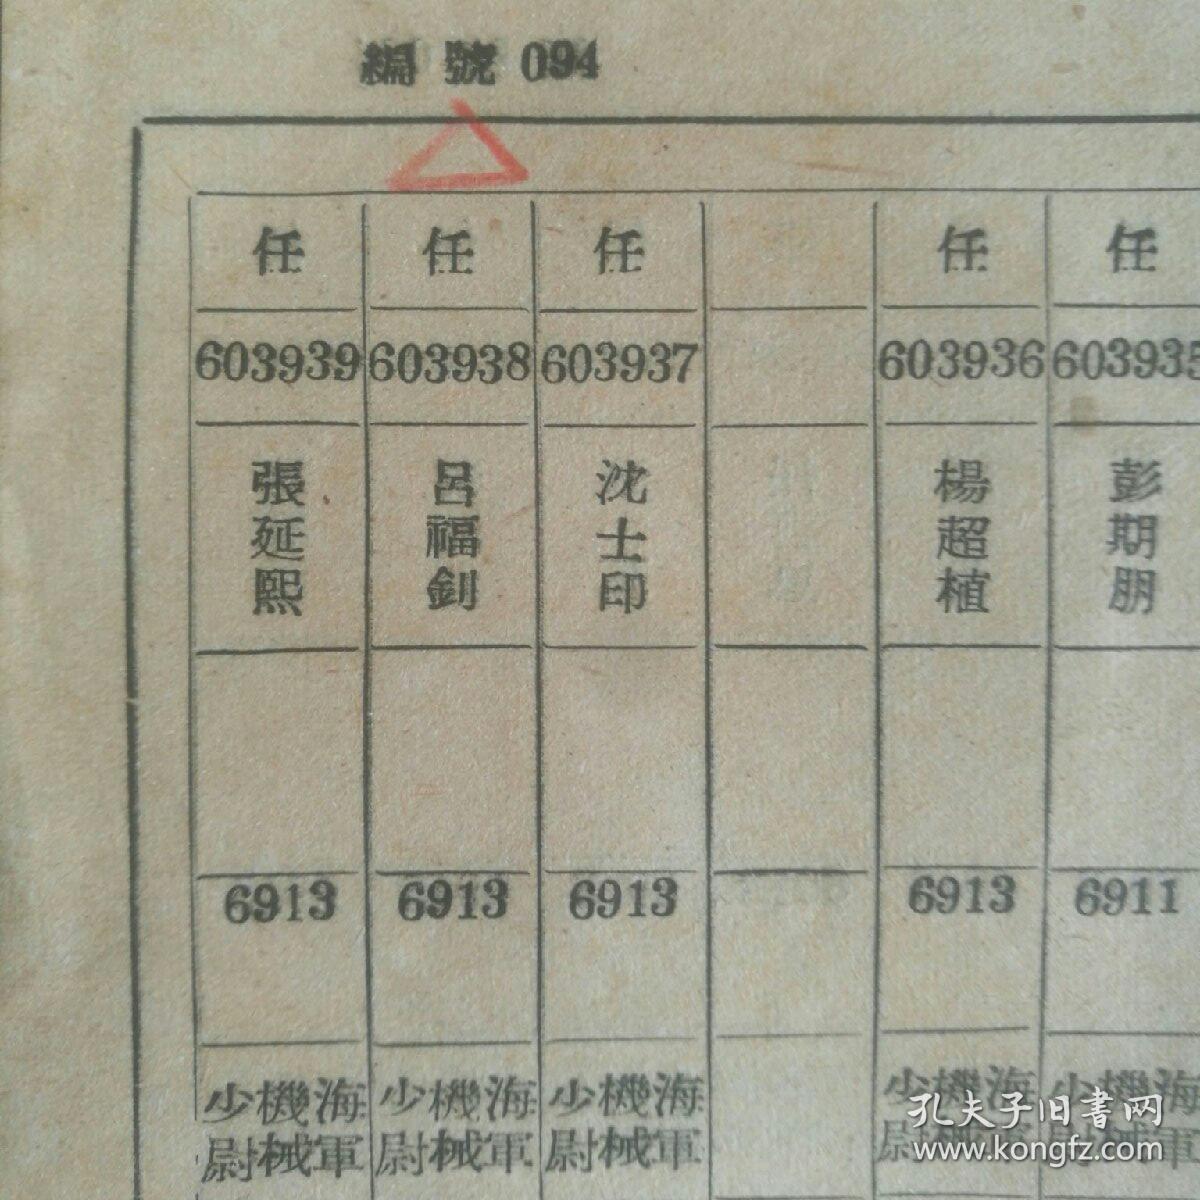 編號 094
任 任 任 任 任
603939 603938 603937 603936 603935
張延熙 呂福釗 沈士印 楊超植 彭期朋
6913 6913 6913 6913 6911
海軍機械少尉 海軍機械少尉 海軍機械少尉 海軍機械少尉 海軍機械少尉
孔夫子旧書网
www.kongfz.com